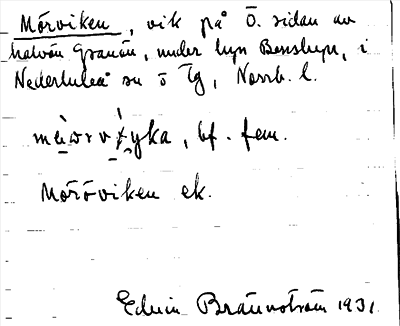 Mörviken, vik på Ö. sidan av
halvön Granön, under byn Bensbyn, i
Nederluleå sn ö tg, Norrb. l.
bf. fem.
Moröviken ek.
Edvin Brännström 1931.